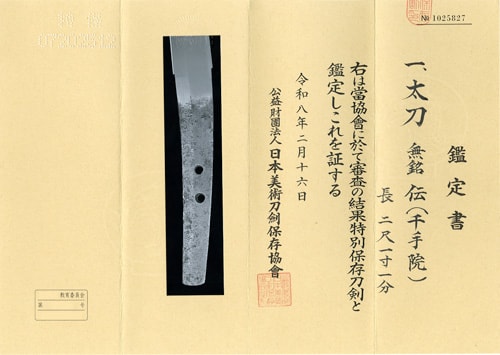 № 1025827
鑑定書
一、太刀 無銘 伝(千手院)
長 二尺一寸一分
右は當協會に於て審査の結果特別保存刀剣と
鑑定しこれを証する
令和八年二月十六日
公益財團法人 日本美術刀劍保存協會
教育委員会
第 号